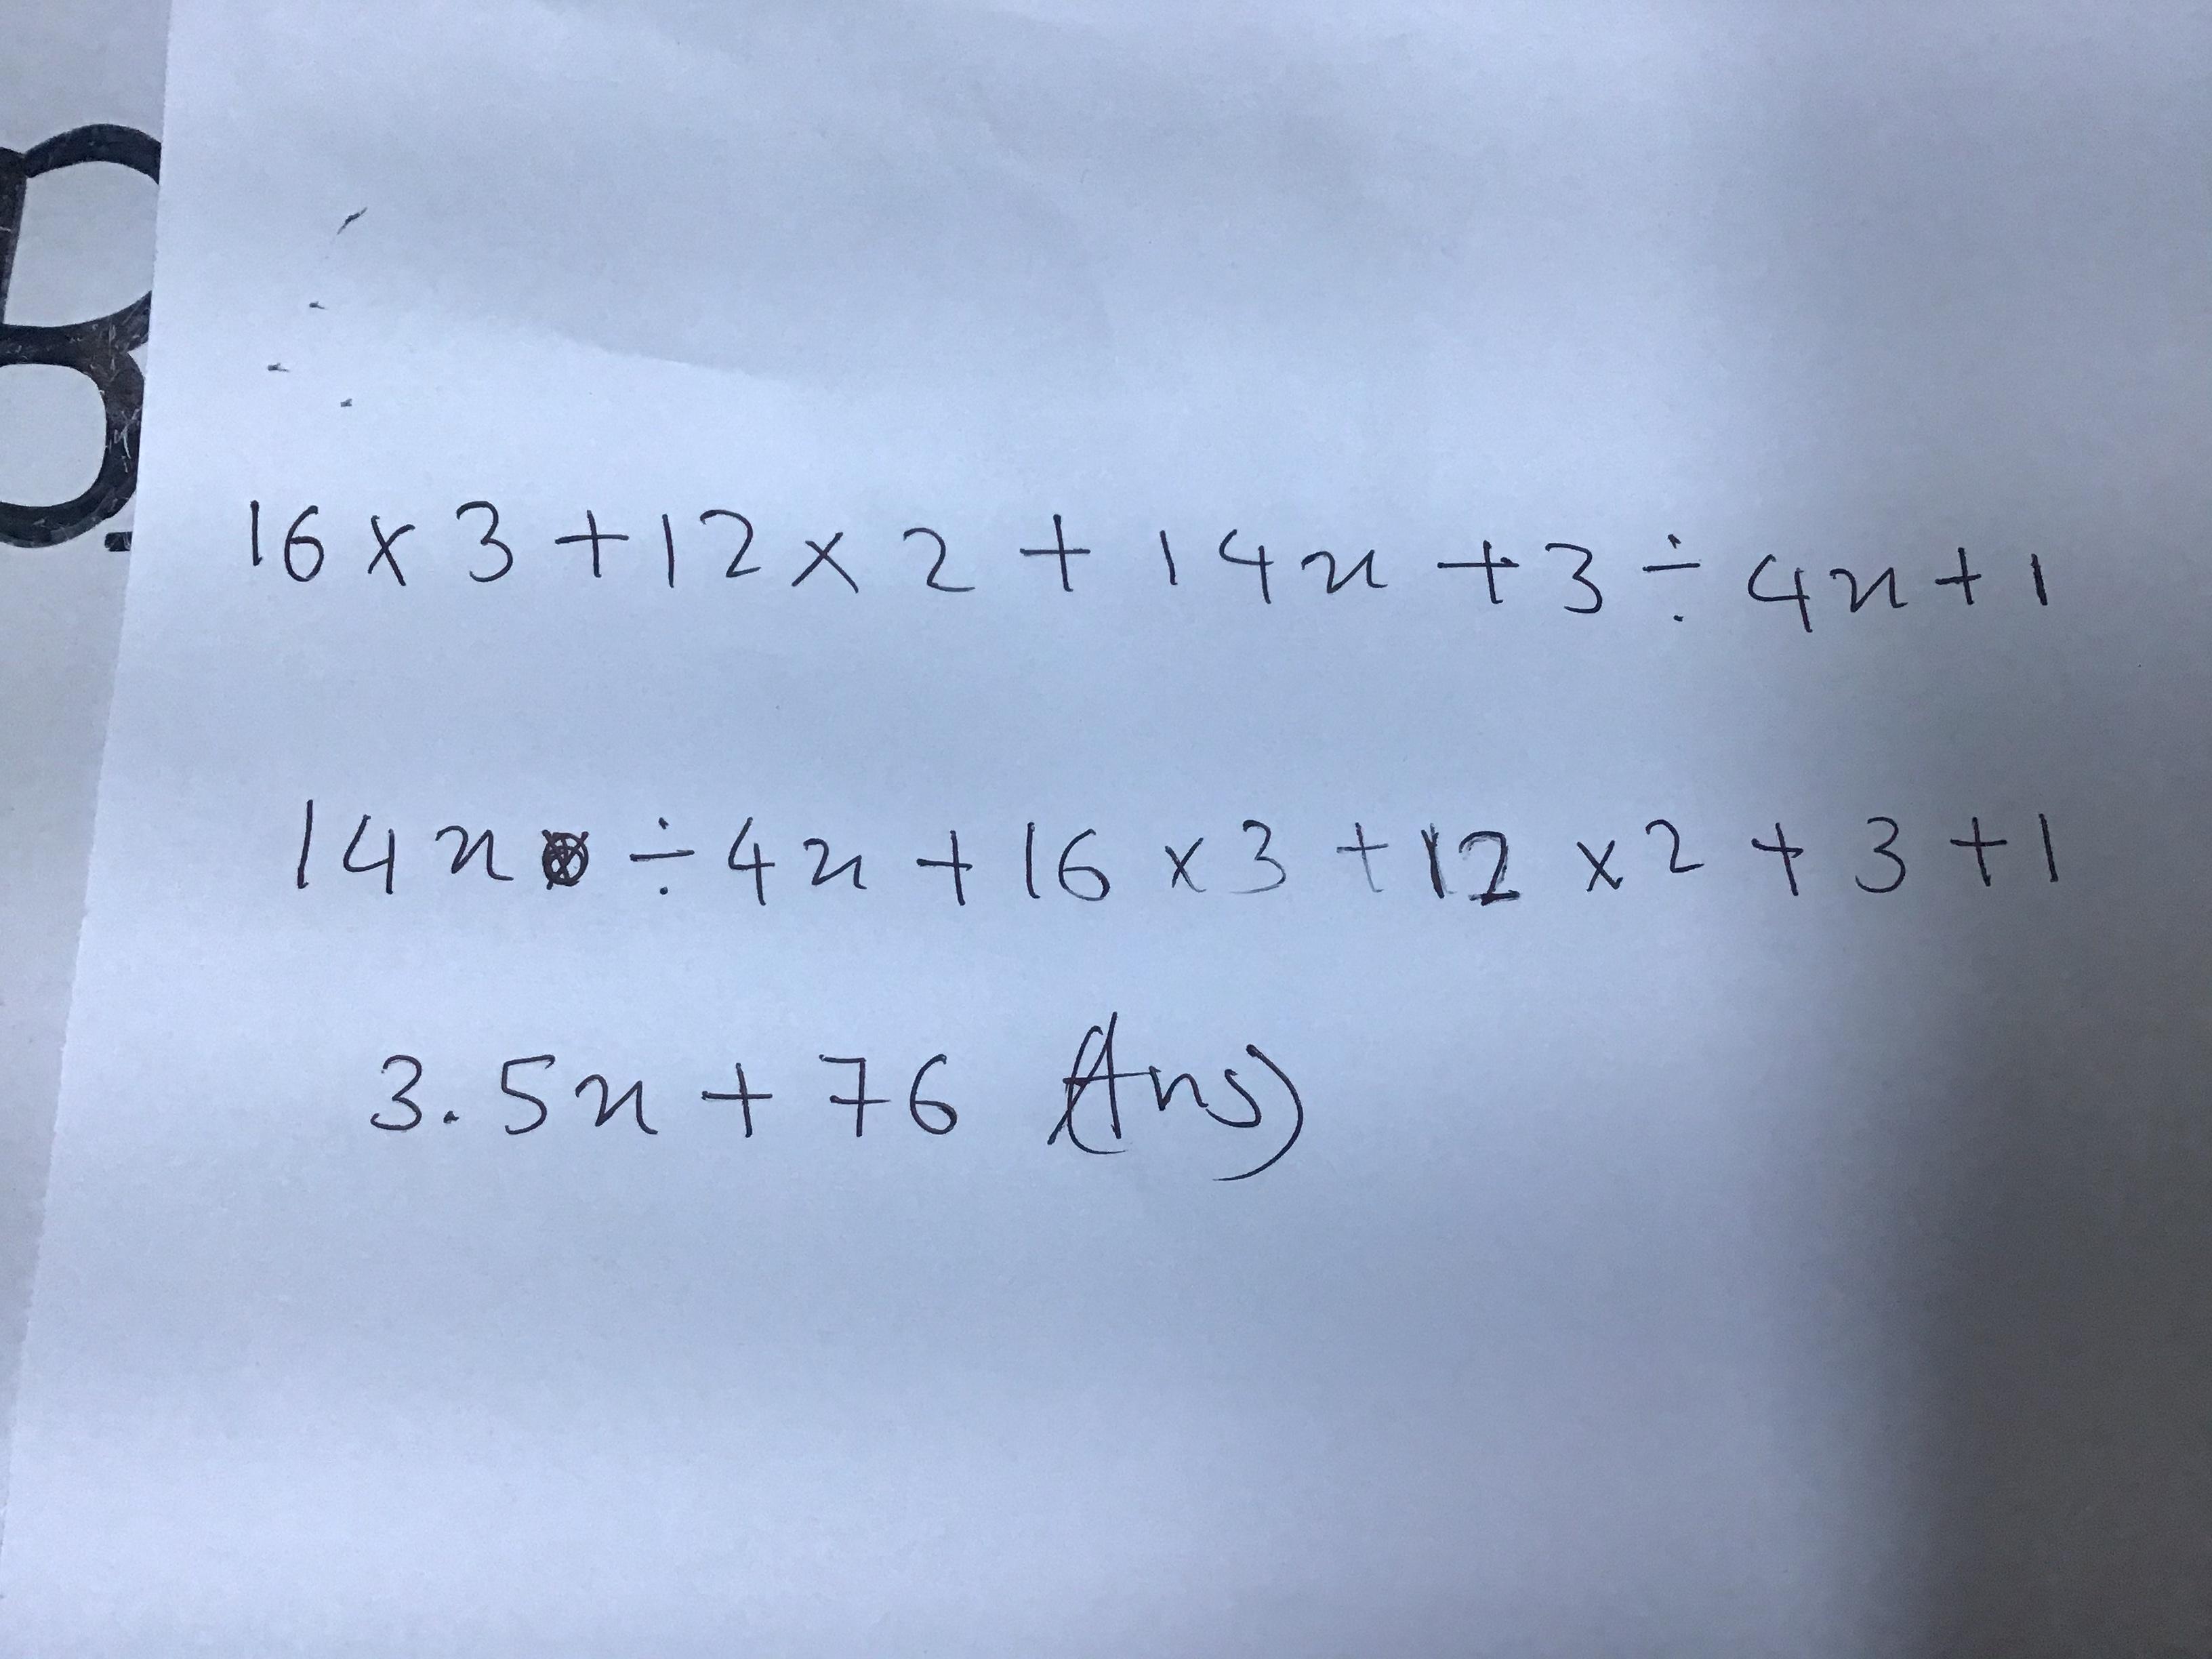 16 x 3 + 12 x 2 + 14x + 3 ÷ 4x + 1
14x ÷ 4x + 16 x 3 + 12 x 2 + 3 + 1
3.5x + 76 Ans)